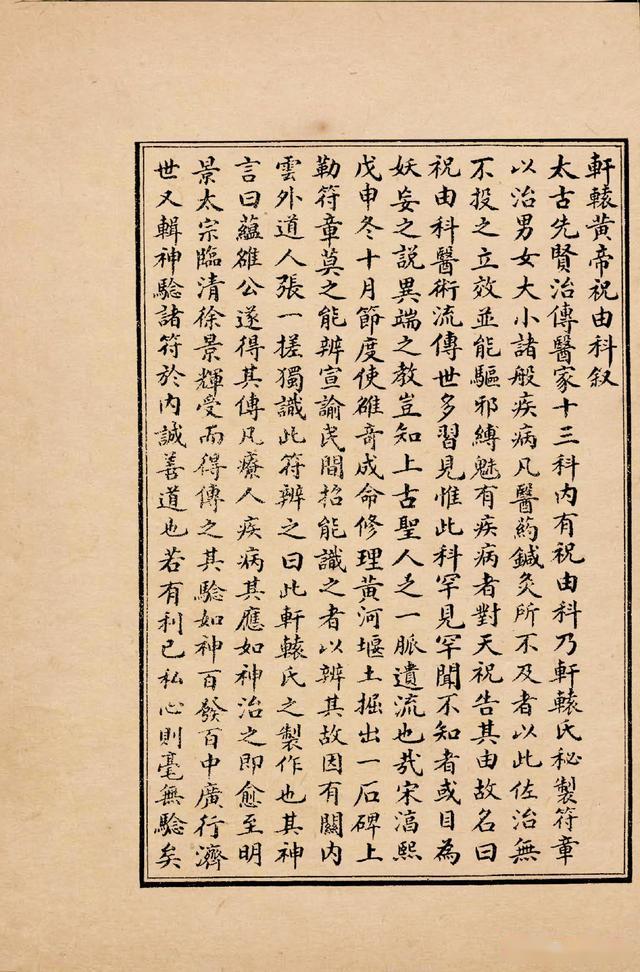 軒轅黃帝祝由科叙
太古先賢治傳醫家十三科內有祝由科乃軒轅氏秘製符章
以治男女大小諸般疾病凡醫药鍼灸所不及者以此佐治無
不投之立效並能驅邪縛魅有疾病者對天祝告其由故名曰
祝由科醫術流傳世多習見惟此科罕見罕聞不知者或目為
妖妄之説異端之教豈知上古聖人之一脈遺流也㦲宋淳熙
戊申冬十月節度使雒竒成命修理黄河堰土掘出一石碑上
勒符章莫之能辨宣諭民間招能識之者以辨其故因有關內
雲外道人張一槎獨識此符辨之曰此軒轅氏之製作也其神
言曰藴雒公遂得其傳凡療人疾病其應如神治之即愈至明
景太宗臨清徐景輝受而得傳之其驗如神百發百中廣行濟
世又輯神驗諸符於內誠善道也若有利已私心則毫無驗矣